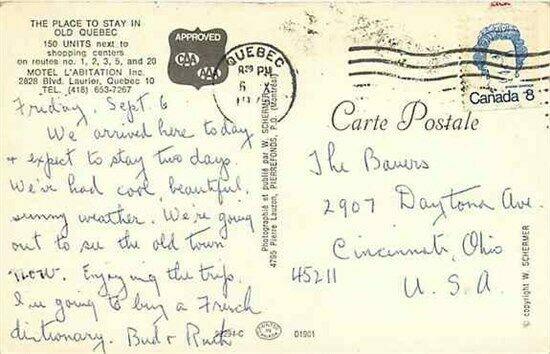 THE PLACE TO STAY IN
OLD QUEBEC
150 UNITS next to
shopping centers
on routes no. 1, 2, 3, 5, and 20
MOTEL L'ABITATION Inc.
2828 Blvd. Laurier, Quebec 10
TEL. (418) 653-7267
APPROVED
CAA
AAA
QUEBEC
PM
6
Canada 8
Carte Postale
Friday, Sept. 6
We arrived here today
+ expect to stay two days.
We've had cool, beautiful,
sunny weather. We're going
out to see the old town
now. Enjoying the trip.
I'm going to buy a French
dictionary. Bud + Ruth
The Bauers
2907 Daytona Ave.
Cincinnati, Ohio
45211
U.S.A.
Photographié et publié par W. SCHERMER
4795 Pierre Lauzon, PIERREFONDS, P.Q. (Montréal)
© copyright W. SCHERMER
D1901